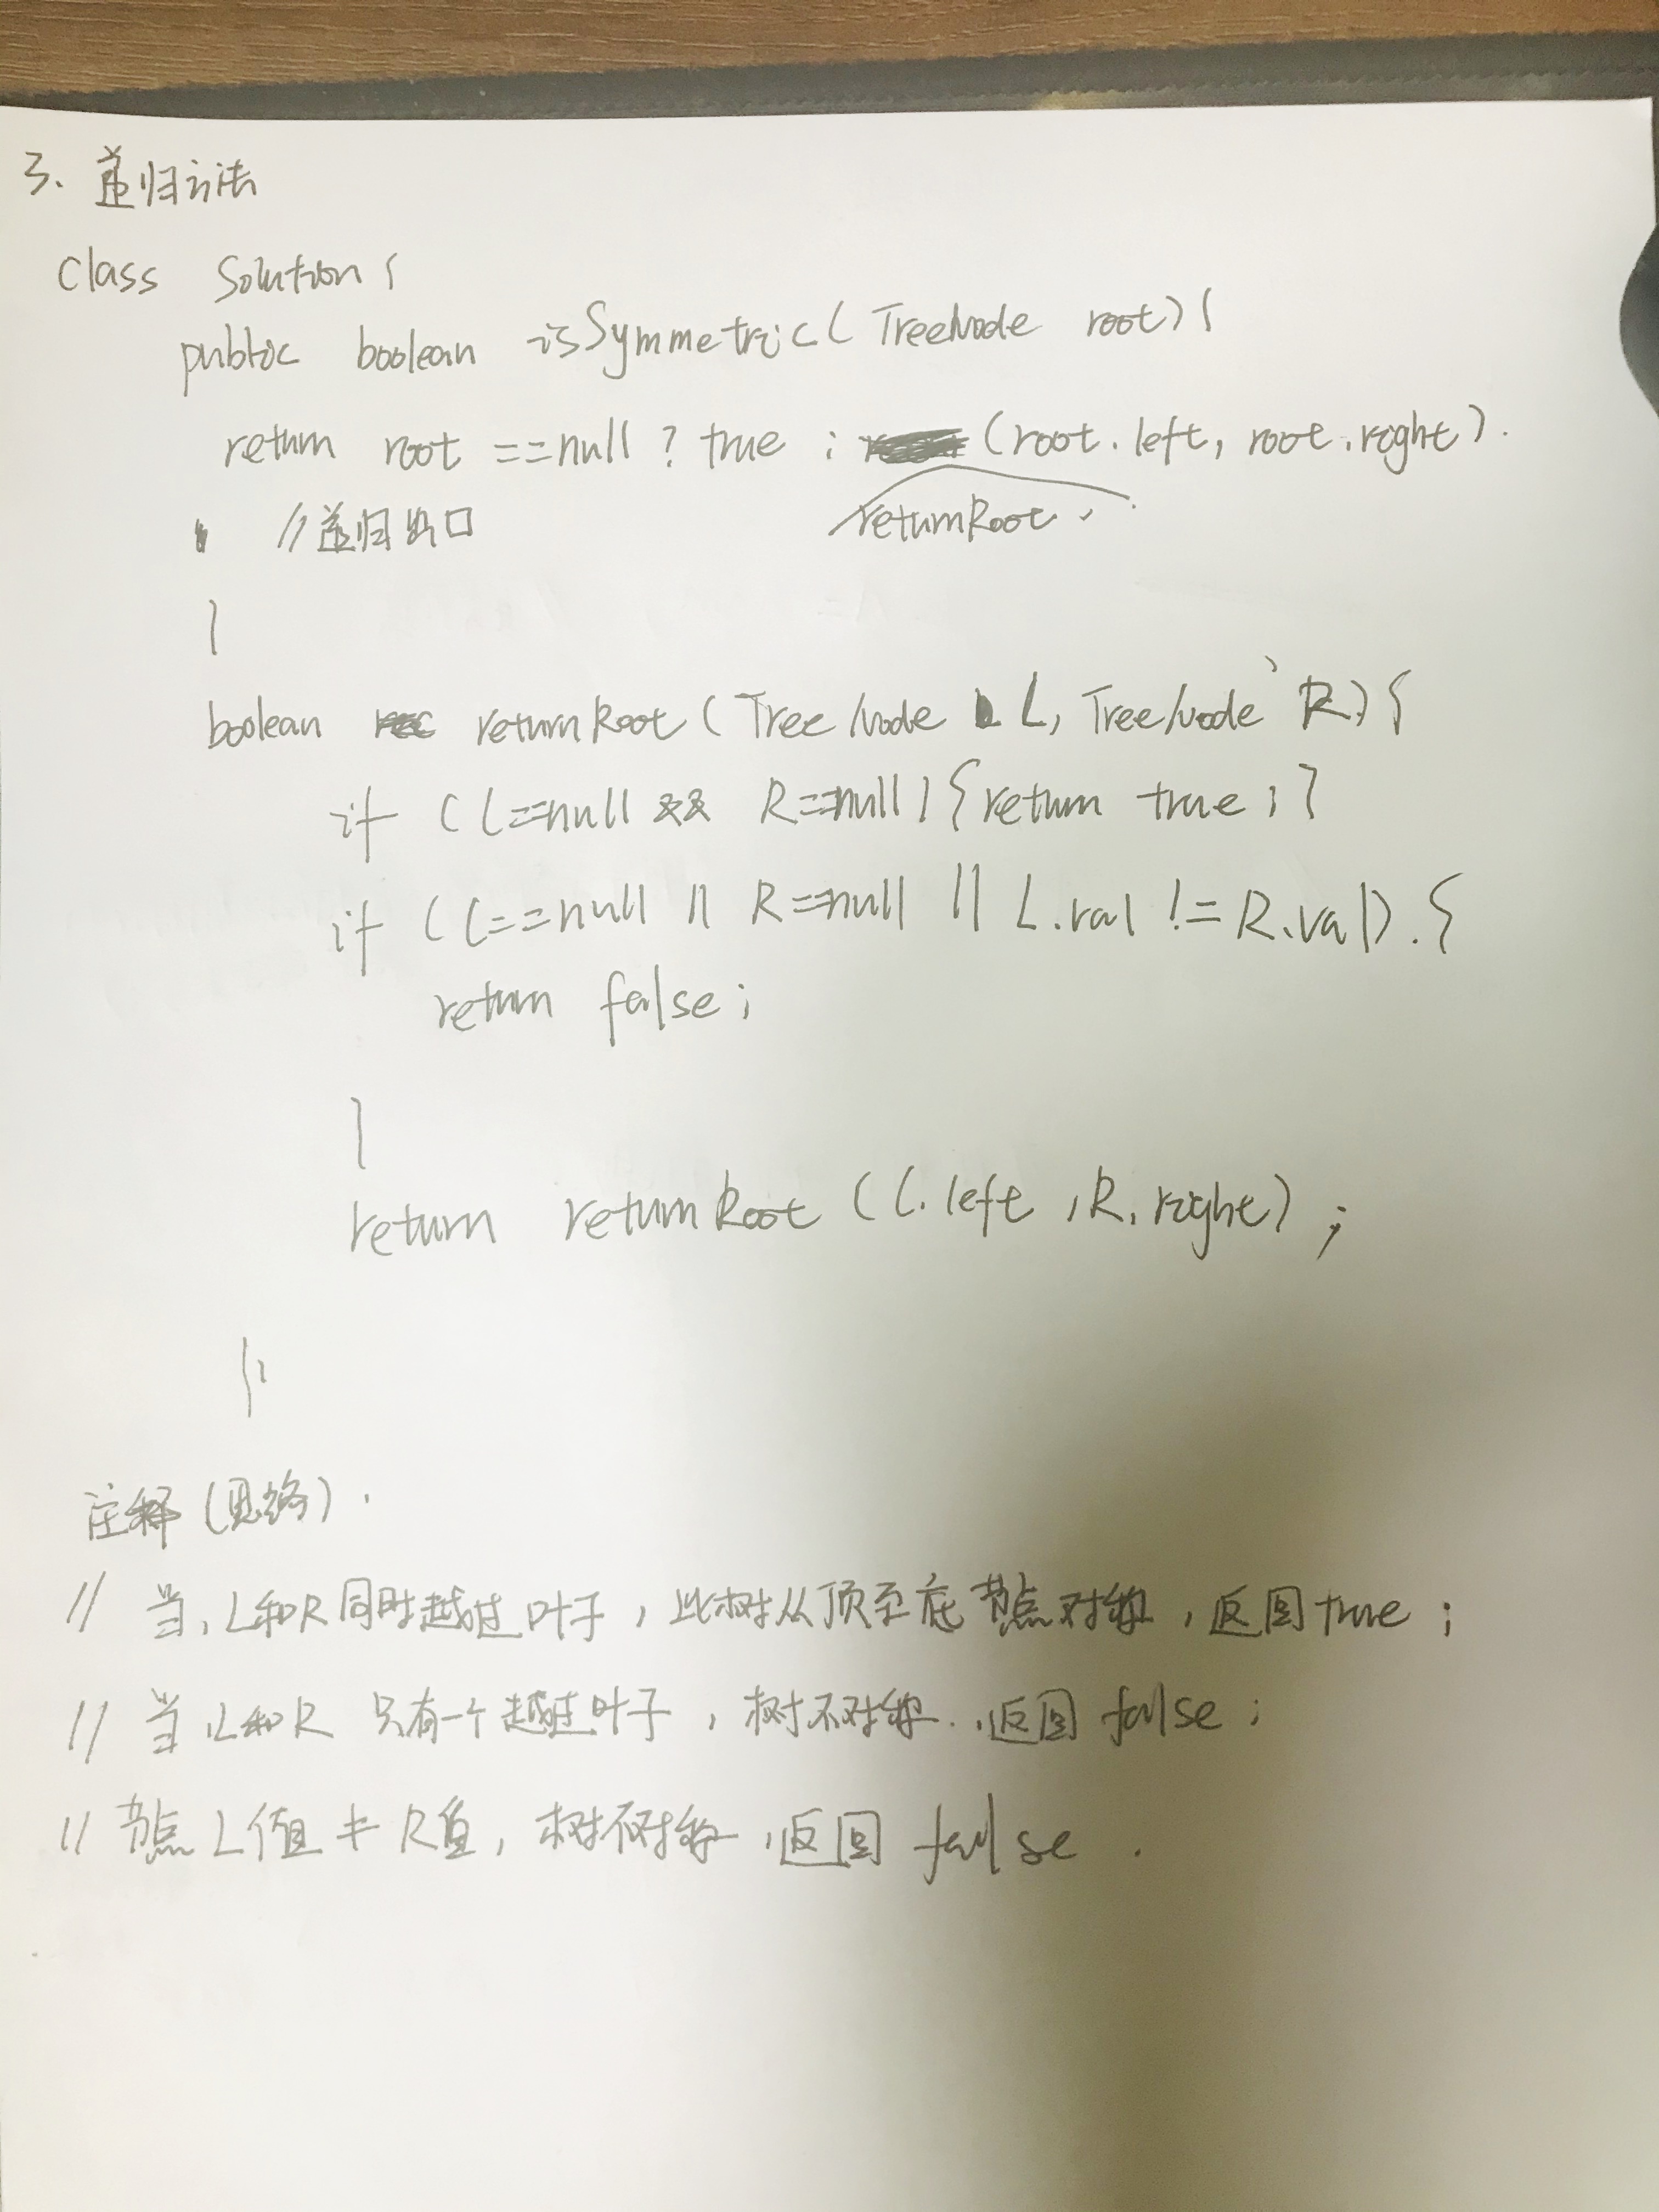 3. 递归方法
class Solution {
public boolean isSymmetric( TreeNode root) {
return root ==null ? true : returnRoot (root.left, root.right).
//递归出口
}
boolean returnRoot ( TreeNode L, TreeNode R) {
if (L==null && R==null) {return true;}
if (L==null || R==null || L.val != R.val). {
return false;
}
return returnRoot (L.left , R.right) ;
}
注释 (思路).
// 当, L和R同时越过叶子, 此树从顶至底节点对称, 返回true ;
// 当, L和R 只有一个越过叶子, 树不对称, 返回 false ;
// 节点L值 ≠ R值, 树不对称, 返回 false .